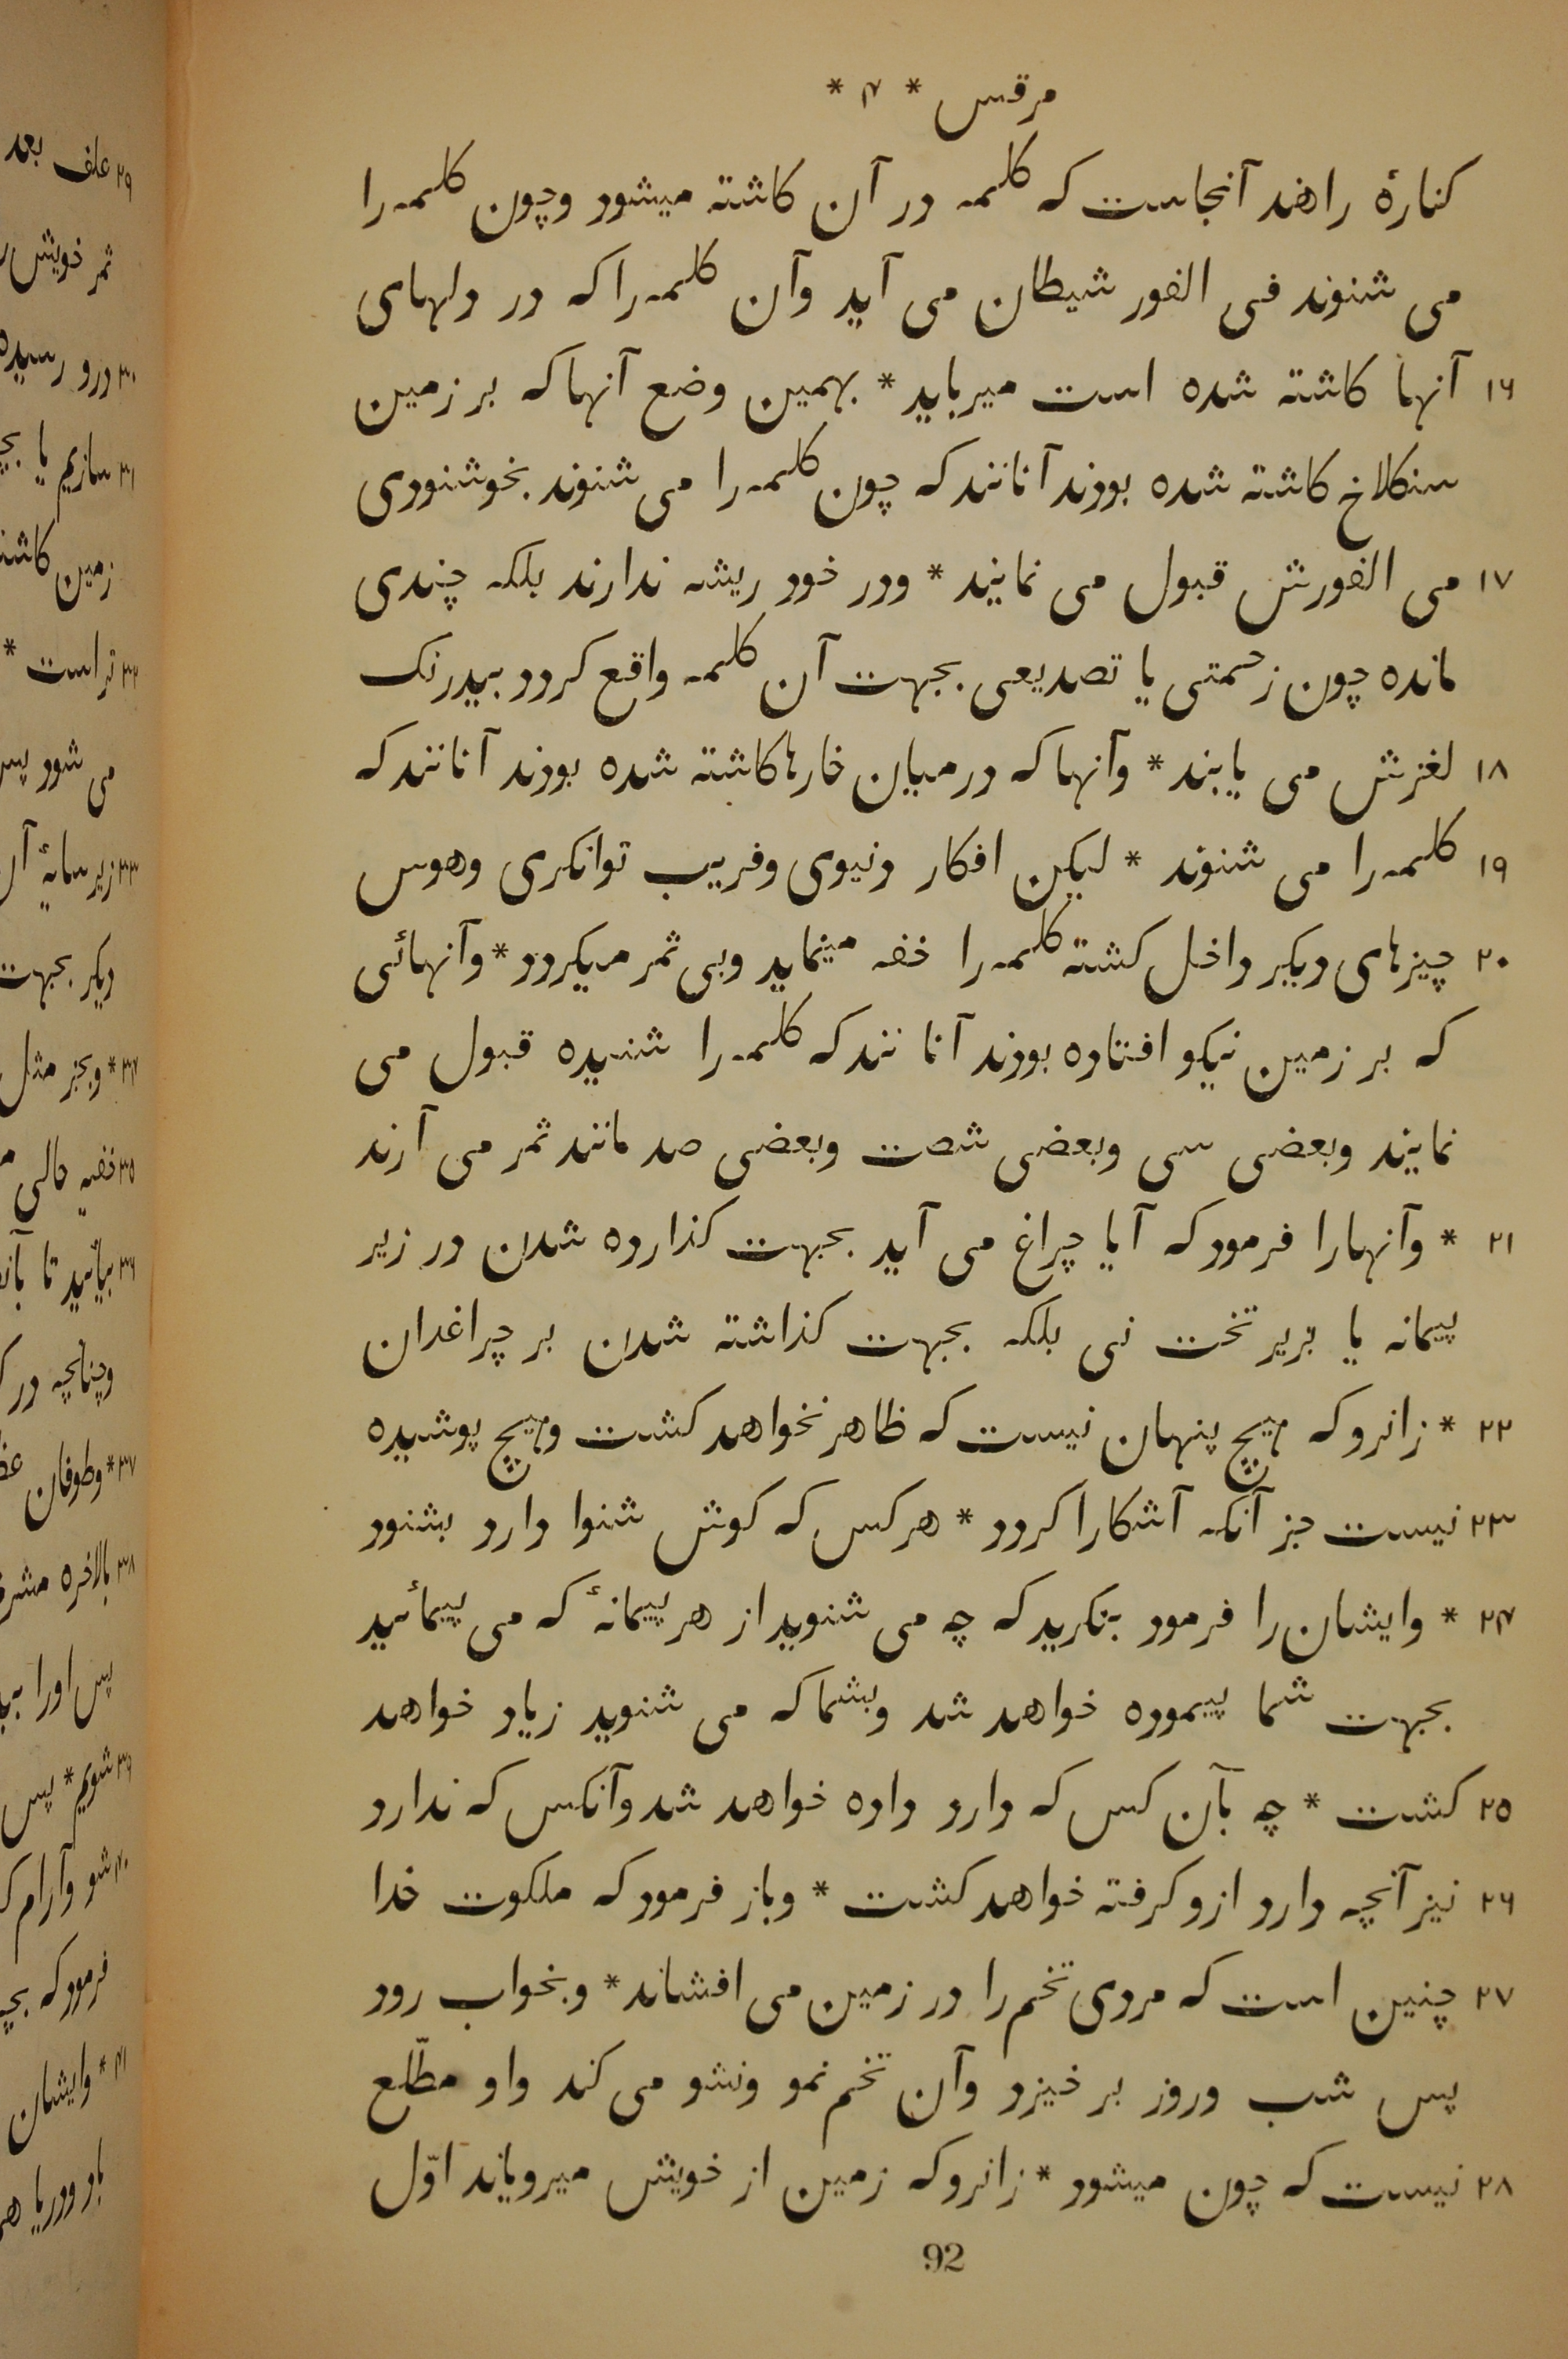 مرقس * ۴ *
کنارۀ راهند آنجاست که کلمه در آن کاشته میشود وچون کلمه را
می شنوند فی الفور شیطان می آید وآن کلمه را که در دلهای
۱۶ آنها کاشته شده است میرباید * بهمین وضع آنها که بر زمین
سنکلاخ کاشته شده بودند آنانند که چون کلمه را می شنوند بخوشنودی
۱۷ می الفورش قبول می نمایند * ودر خود ریشه ندارند بلکه چندی
مانده چون زحمتی یا تصدیعی بجهت آن کلمه واقع کردد بیدرنک
۱۸ لغزش می یابند * وآنها که در میان خارها کاشته شده بودند آنانند که
۱۹ کلمه را می شنوند * لیکن افکار دنیوی وفریب توانکری وهوس
۲۰ چیزهای دیکر داخل کشته کلمه را خفه مینماید وبی ثمر میکردد * وآنهائی
که بر زمین نیکو افتاده بودند آنا نند که کلمه را شنیده قبول می
نمایند وبعضی سی وبعضی شصت وبعضی صد مانند ثمر می آرند
۲۱ * وآنهارا فرمود که آیا چراغ می آید بجهت کذارده شدن در زیر
پیمانه یا بزیر تخت نی بلکه بجهت کذاشته شدن بر چراغدان
۲۲ * زانرو که هیچ پنهان نیست که ظاهر نخواهد کشت وهیچ پوشیده
۲۳ نیست جز آنکه آشکارا کردد * هر کس که کوش شنوا دارد بشنود
۲۴ * وایشان را فرمود بنکرید که چه می شنوید از هر پیمانۀ که می پیمائید
بجهت شما پیموده خواهد شد وبشما که می شنوید زیاد خواهد
۲۵ کشت * چه بآن کس که دارد داده خواهد شد وآنکس که ندارد
۲۶ نیز آنچه دارد ازو کرفته خواهد کشت * وباز فرمود که ملکوت خدا
۲۷ چنین است که مردی تخم را در زمین می افشاند * وبخواب رود
پس شب وروز بر خیزد وآن تخم نمو ونشو می کند واو مطّلع
۲۸ نیست که چون میشود * زانرو که زمین از خویش میرویاند اوّل
92
۲۹ علف بعد
ثمر خویش
۳۰ درو رسیده
۳۱ سازیم یا
زمین
۳۲ تر است *
می شود پس
۳۳ زیر سایۀ
دیکر بجهت
۳۴ * وبجز مثل
۳۵ خفیه حالی
۳۶ بیائید تا
وچنانچه در
۳۷ * وطوفان
۳۸ بالاخره
پس اورا
۳۹ شویم * پس
۴۰ شو وآرام
فرمود که
۴۱ * وایشان
باد ودریا